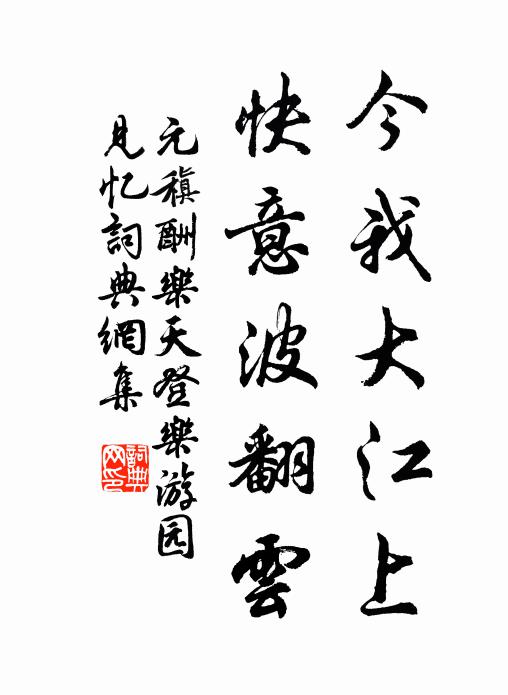 今我大江上
快意波翻雲
元稹酬樂天登樂游园
見忆詞典網集
詞典
网印